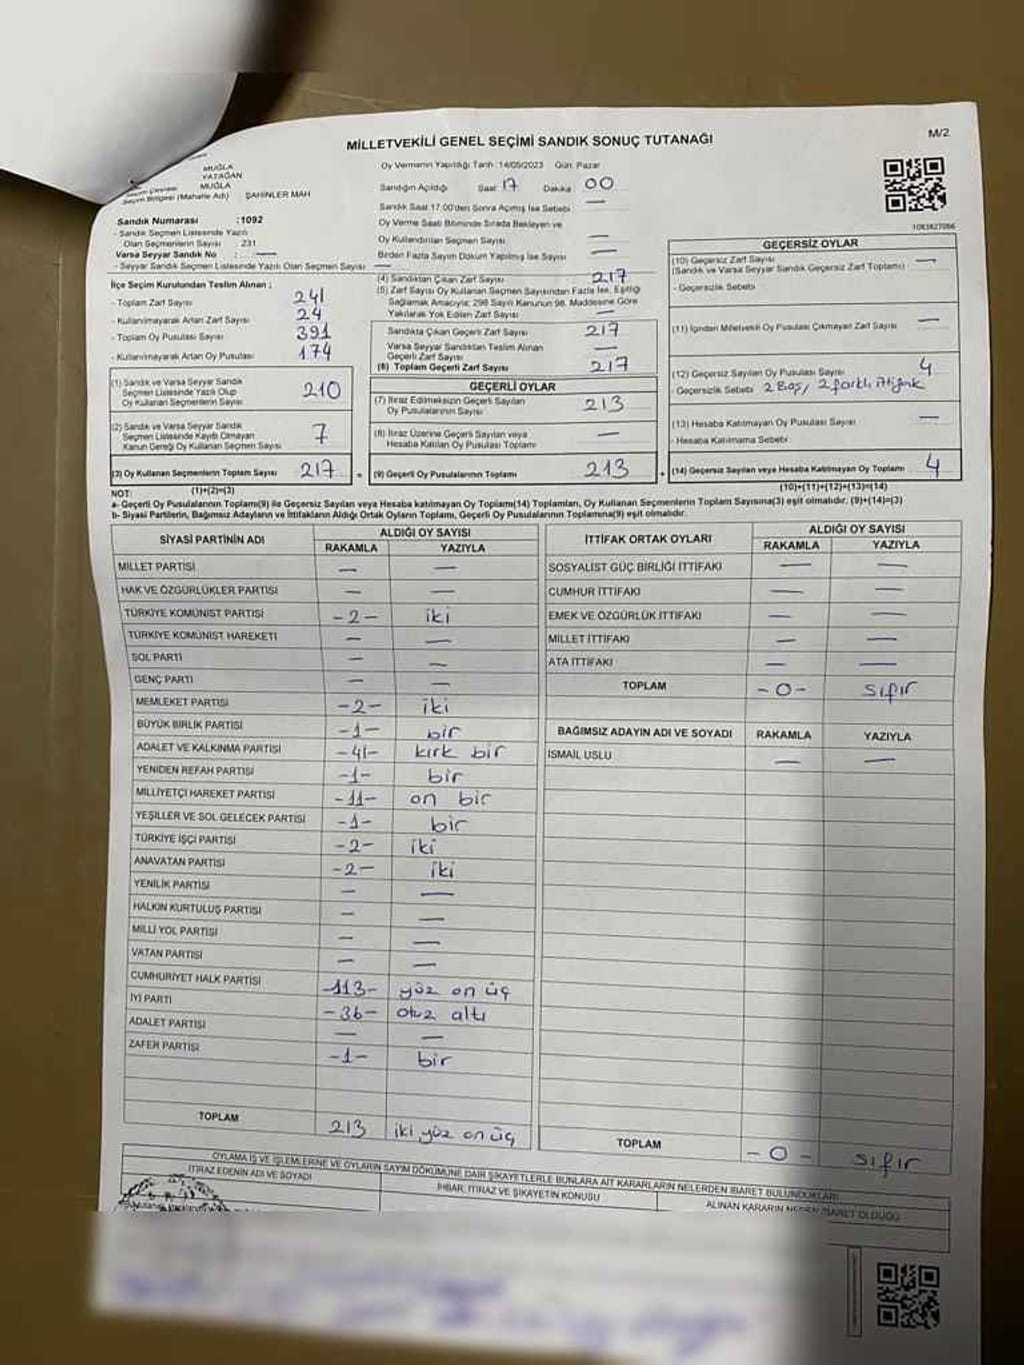 MİLLETVEKİLİ GENEL SEÇİMİ SANDIK SONUÇ TUTANAĞI
M/2
MUĞLA
YATAĞAN
MUĞLA
Seçim Bölgesi (Mahalle Adı) ŞAHİNLER MAH
Sandık Numarası :1092
- Sandık Seçmen Listesinde Yazılı
Olan Seçmenlerin Sayısı 231
Varsa Seyyar Sandık No : —
- Seyyar Sandık Seçmen Listesinde Yazılı Olan Seçmen Sayısı —
Oy Vermenin Yapıldığı Tarih :14/05/2023 Gün: Pazar
Sandığın Açıldığı Saat 17 Dakika 00
Sandık Saat 17.00'den Sonra Açılmış İse Sebebi : —
Oy Verme Saati Bitiminde Sırada Bekleyen ve
Oy Kullandırılan Seçmen Sayısı —
Birden Fazla Sayım Döküm Yapılmış İse Sayısı —
1083827066
İlçe Seçim Kurulundan Teslim Alınan ;
- Toplam Zarf Sayısı 241
- Kullanılmayarak Artan Zarf Sayısı 24
- Toplam Oy Pusulası Sayısı 391
- Kullanılmayarak Artan Oy Pusulası 174
(1) Sandık ve Varsa Seyyar Sandık
Seçmen Listesinde Yazılı Olup
Oy Kullanan Seçmenlerin Sayısı 210
(2) Sandık ve Varsa Seyyar Sandık
Seçmen Listesinde Kaydı Olmayan
Kanun Gereği Oy Kullanan Seçmen Sayısı 7
(3) Oy Kullanan Seçmenlerin Toplam Sayısı 217
(1)+(2)=(3)
(4) Sandıktan Çıkan Zarf Sayısı 217
(5) Zarf Sayısı Oy Kullanan Seçmen Sayısından Fazla İse, Eşitliği
Sağlamak Amacıyla; 298 Sayılı Kanunun 98. Maddesine Göre
Yakılarak Yok Edilen Zarf Sayısı —
Sandıkta Çıkan Geçerli Zarf Sayısı 217
Varsa Seyyar Sandıktan Teslim Alınan
Geçerli Zarf Sayısı —
(6) Toplam Geçerli Zarf Sayısı 217
GEÇERLİ OYLAR
(7) İtiraz Edilmeksizin Geçerli Sayılan
Oy Pusulalarının Sayısı 213
(8) İtiraz Üzerine Geçerli Sayılan veya
Hesaba Katılan Oy Pusulası Toplamı —
(9) Geçerli Oy Pusulalarının Toplamı 213
GEÇERSİZ OYLAR
(10) Geçersiz Zarf Sayısı —
(Sandık ve Varsa Seyyar Sandık Geçersiz Zarf Toplamı)
- Geçersizlik Sebebi
(11) İçinden Milletvekili Oy Pusulası Çıkmayan Zarf Sayısı —
(12) Geçersiz Sayılan Oy Pusulası Sayısı 4
- Geçersizlik Sebebi 2 Boş, 2 farklı ittifak
(13) Hesaba Katılmayan Oy Pusulası Sayısı —
- Hesaba Katılmama Sebebi
(14) Geçersiz Sayılan veya Hesaba Katılmayan Oy Toplamı 4
(10)+(11)+(12)+(13)=(14)
NOT:
a- Geçerli Oy Pusulalarının Toplamı(9) ile Geçersiz Sayılan veya Hesaba katılmayan Oy Toplamı(14) Toplamları, Oy Kullanan Seçmenlerin Toplam Sayısına(3) eşit olmalıdır. (9)+(14)=(3)
b- Siyasi Partilerin, Bağımsız Adayların ve İttifakların Aldığı Ortak Oyların Toplamı, Geçerli Oy Pusulalarının Toplamına(9) eşit olmalıdır.
SİYASİ PARTİNİN ADI ALDIĞI OY SAYISI
RAKAMLA YAZIYLA
MİLLET PARTİSİ — —
HAK VE ÖZGÜRLÜKLER PARTİSİ — —
TÜRKİYE KOMÜNİST PARTİSİ -2- iki
TÜRKİYE KOMÜNİST HAREKETİ — —
SOL PARTİ — —
GENÇ PARTİ — —
MEMLEKET PARTİSİ -2- iki
BÜYÜK BİRLİK PARTİSİ -1- bir
ADALET VE KALKINMA PARTİSİ -41- kırk bir
YENİDEN REFAH PARTİSİ -1- bir
MİLLİYETÇİ HAREKET PARTİSİ -11- on bir
YEŞİLLER VE SOL GELECEK PARTİSİ -1- bir
TÜRKİYE İŞÇİ PARTİSİ -2- iki
ANAVATAN PARTİSİ -2- iki
YENİLİK PARTİSİ — —
HALKIN KURTULUŞ PARTİSİ — —
MİLLİ YOL PARTİSİ — —
VATAN PARTİSİ — —
CUMHURİYET HALK PARTİSİ -113- yüz on üç
İYİ PARTİ -36- otuz altı
ADALET PARTİSİ — —
ZAFER PARTİSİ -1- bir
TOPLAM 213 iki yüz on üç
İTTİFAK ORTAK OYLARI ALDIĞI OY SAYISI
RAKAMLA YAZIYLA
SOSYALİST GÜÇ BİRLİĞİ İTTİFAKI — —
CUMHUR İTTİFAKI — —
EMEK VE ÖZGÜRLÜK İTTİFAKI — —
MİLLET İTTİFAKI — —
ATA İTTİFAKI — —
TOPLAM -0- sıfır
BAĞIMSIZ ADAYIN ADI VE SOYADI RAKAMLA YAZIYLA
İSMAİL USLU — —
TOPLAM -0- sıfır
OYLAMA İŞ VE İŞLEMLERİNE VE OYLARIN SAYIM DÖKÜMÜNE DAİR ŞİKAYETLERLE BUNLARA AİT KARARLARIN NELERDEN İBARET BULUNDUKLARI
İTİRAZ EDENİN ADI VE SOYADI
İHBAR, İTİRAZ VE ŞİKAYETİN KONUSU
ALINAN KARARIN NEDEN İBARET OLDUĞU